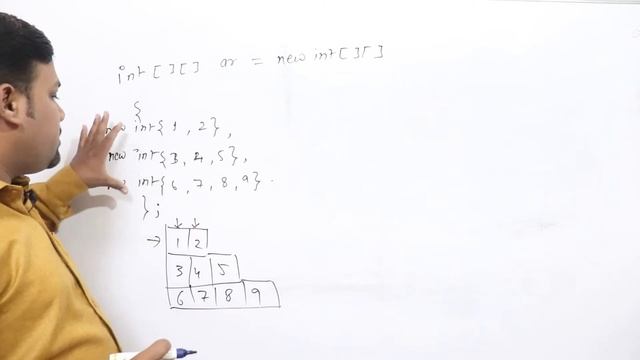 int[][] ar = new int[][]
{
new int{1, 2},
new int{3, 4, 5},
int{6, 7, 8, 9}
};
1 2
3 4 5
6 7 8 9